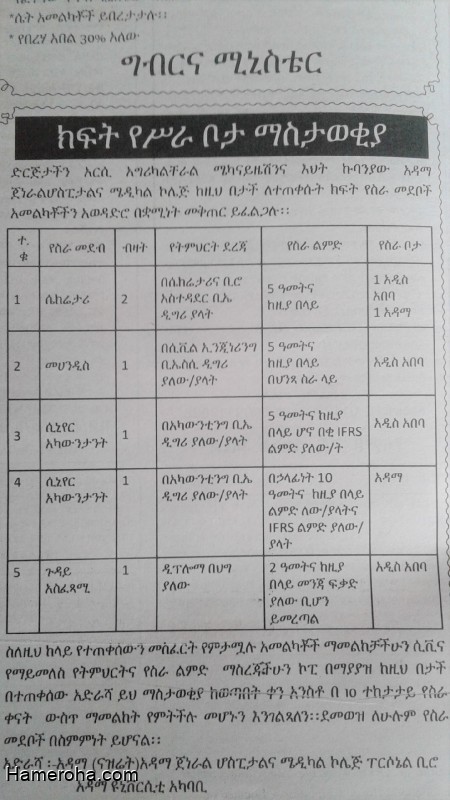 *ሴት አመልካቾች ይበረታታሉ።
* የበረሃ አበል 30% አለው
ግብርና ሚኒስቴር
ክፍት የሥራ ቦታ ማስታወቂያ
ድርጅታችን አርሲ አግሪካልቸራል ሜካናይዜሽንና እህት ኩባንያው አዳማ
ጀነራልሆስፒታልና ሜዲካል ኮሌጅ ከዚህ በታች ለተጠቀሱት ክፍት የስራ መደቦች
አመልካቾችን አወዳድሮ በቋሚነት መቅጠር ይፈልጋሉ፡፡
ተ.ቁ የስራ መደብ ብዛት የትምህርት ደረጃ የስራ ልምድ የስራ ቦታ
1 ሴክሬታሪ 2 በሴክሬታሪና ቢሮ አስተዳደር ቢኤ ዲግሪ ያላት 5 ዓመትና ከዚያ በላይ 1 አዲስ አበባ 1 አዳማ
2 መሀንዲስ 1 በሲቪል ኢንጂነሪንግ ቢኤስሲ ዲግሪ ያለው/ያላት 5 ዓመትና ከዚያ በላይ በህንጻ ስራ ላይ አዲስ አበባ
3 ሲኒየር አካውንታንት 1 በአካውንቲንግ ቢኤ ዲግሪ ያለው/ያላት 5 ዓመትና ከዚያ በላይ ሆኖ በቂ IFRS ልምድ ያለው/ት አዲስ አበባ
4 ሲኒየር አካውንታንት 1 በአካውንቲንግ ቢኤ ዲግሪ ያለው/ያላት በኃላፊነት 10 ዓመትና ከዚያ በላይ ልምድ ለው/ያላትና IFRS ልምድ ያለው/ያላት አዳማ
5 ጉዳይ አስፈጻሚ 1 ዲፕሎማ በህግ ያለው 2 ዓመትና ከዚያ በላይ መንጃ ፍቃድ ያለው ቢሆን ይመረጣል አዲስ አበባ
ስለዚህ ከላይ የተጠቀሰውን መስፈርት የምታሟሉ አመልካቾች ማመልከቻችሁን ሲቪና
የማይመለስ የትምህርትና የስራ ልምድ ማስረጃችሁን ኮፒ በማያያዝ ከዚህ በታች
በተጠቀሰው አድራሻ ይህ ማስታወቂያ ከወጣበት ቀን አንስቶ በ 10 ተከታታይ የስራ
ቀናት ውስጥ ማመልከት የምትችሉ መሆኑን እንገልጻለን፡፡ደመወዝ ለሁሉም የስራ
መደቦች በስምምነት ይሆናል፡፡
አድራሻ ፡-አዳማ (ናዝሬት)አዳማ ጀነራል ሆስፒታልና ሜዲካል ኮሌጅ ፐርሶኔል ቢሮ
አዳማ ዩኒቨርሲቲ አካባቢ
Hameroha.com